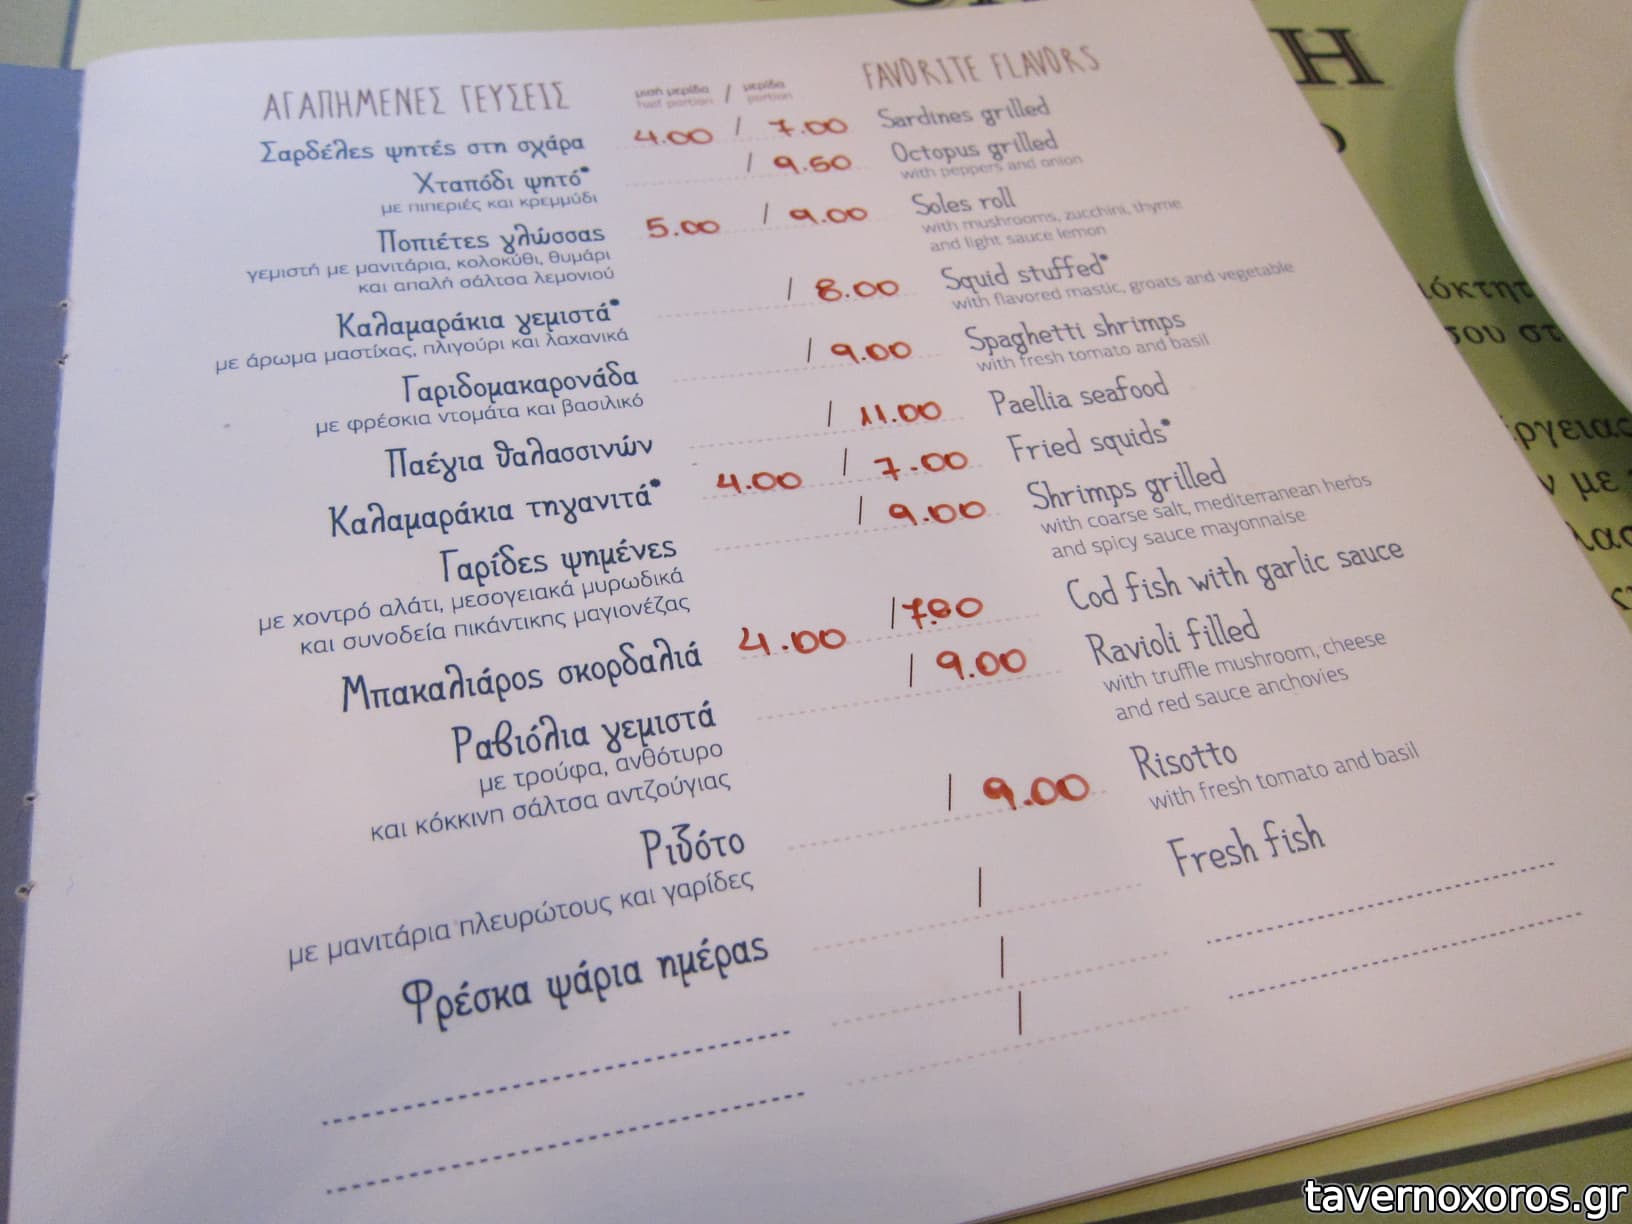 ΑΓΑΠΗΜΕΝΕΣ ΓΕΥΣΕΙΣ
μισή μερίδα / μερίδα
half portion / portion
FAVORITE FLAVORS
Σαρδέλες ψητές στη σχάρα 4.00 / 7.00 Sardines grilled
Χταπόδι ψητό* / 9.50 Octopus grilled
με πιπεριές και κρεμμύδι with peppers and onion
Ποπιέτες γλώσσας 5.00 / 9.00 Soles roll
γεμιστή με μανιτάρια, κολοκύθι, θυμάρι with mushrooms, zucchini, thyme
και απαλή σάλτσα λεμονιού and light sauce lemon
Καλαμαράκια γεμιστά* / 8.00 Squid stuffed*
με άρωμα μαστίχας, πλιγούρι και λαχανικά with flavored mastic, groats and vegetable
Γαριδομακαρονάδα / 9.00 Spaghetti shrimps
με φρέσκια ντομάτα και βασιλικό with fresh tomato and basil
Παέγια θαλασσινών / 11.00 Paellia seafood
Καλαμαράκια τηγανιτά* 4.00 / 7.00 Fried squids*
Γαρίδες ψημένες / 9.00 Shrimps grilled
με χοντρό αλάτι, μεσογειακά μυρωδικά with coarse salt, mediterranean herbs
και συνοδεία πικάντικης μαγιονέζας and spicy sauce mayonnaise
Μπακαλιάρος σκορδαλιά 4.00 / Cod fish with garlic sauce
Ραβιόλια γεμιστά / 9.00 Ravioli filled
με τρούφα, ανθότυρο with truffle mushroom, cheese
και κόκκινη σάλτσα αντζούγιας and red sauce anchovies
Ριζότο / 9.00 Risotto
με μανιτάρια πλευρώτους και γαρίδες with fresh tomato and basil
Φρέσκα ψάρια ημέρας / Fresh fish
/
/
Η
όκτητ
σου στ
έργειας
ν με
tavernoxoros.gr